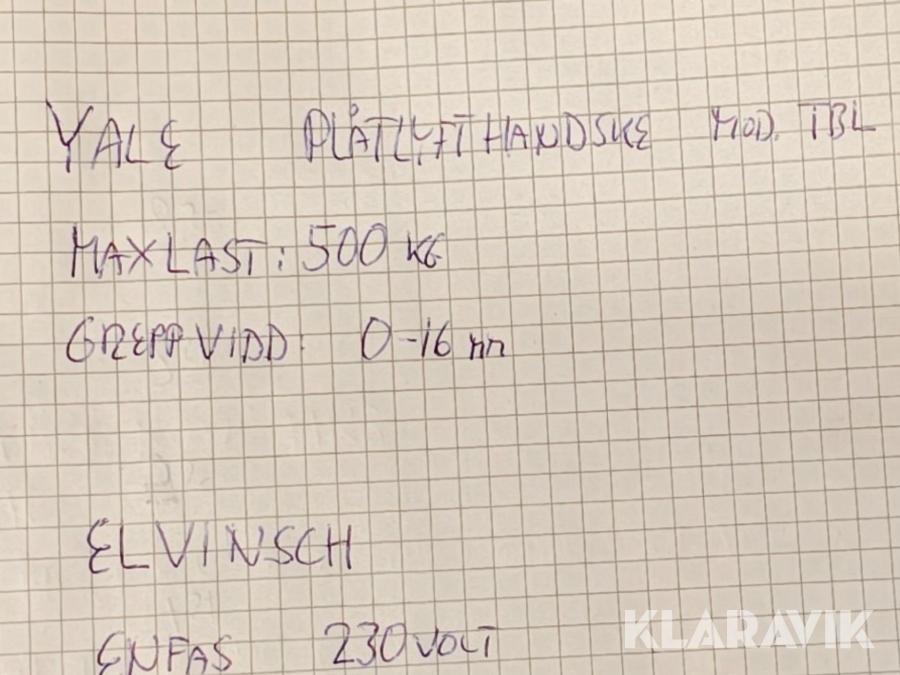 YALE PLÅTLYFTHANDSKE MOD. TBL
MAXLAST: 500 KG
GREPPVIDD: 0-16 mm
ELVINSCH
ENFAS 230VOLT
KLARAVIK